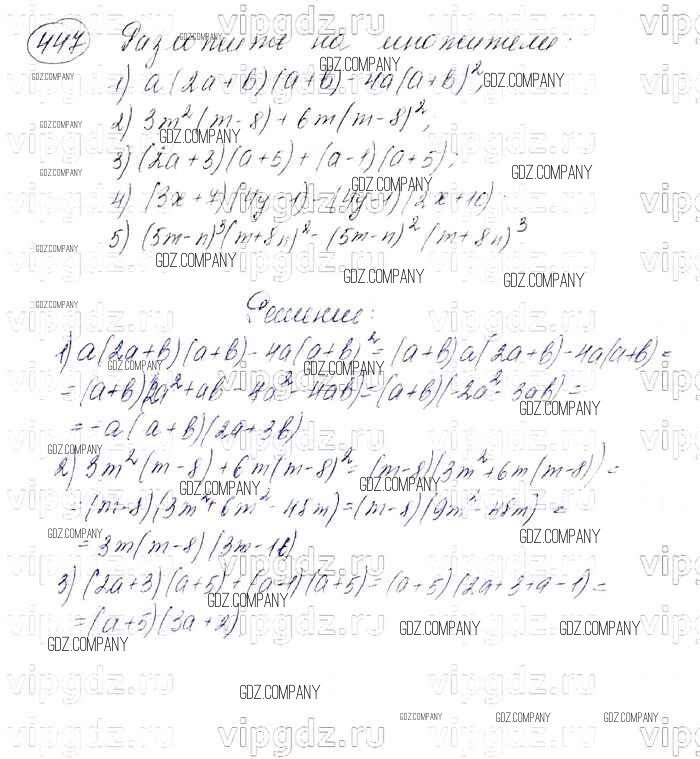 447 Разложить на множители:
1) a(2a+b)(a+b)-4a(a+b)²;
2) 3m²(m-8)+6m(m-8)²;
3) (2a+3)(a+5)+(a-1)(a+5);
4) (3x+7)(4y-1)-(4y-1)(2x+10)
5) (5m-n)³(m+8n)²-(5m-n)²(m+8n)³
Решение:
1) a(2a+b)(a+b)-4a(a+b)²=(a+b)a(2a+b)-4a(a+b)=
=(a+b)(2a²+ab-4a²-4ab)=(a+b)(-2a²-3ab)=
=-a(a+b)(2a+3b)
2) 3m²(m-8)+6m(m-8)²=(m-8)(3m²+6m(m-8))=
=(m-8)(3m²+6m²-48m)=(m-8)(9m²-48m)=
=3m(m-8)(3m-16)
3) (2a+3)(a+5)+(a-1)(a+5)=(a+5)(2a+3+a-1)=
=(a+5)(3a+2)
vipgdz.ru
GDZ.COMPANY